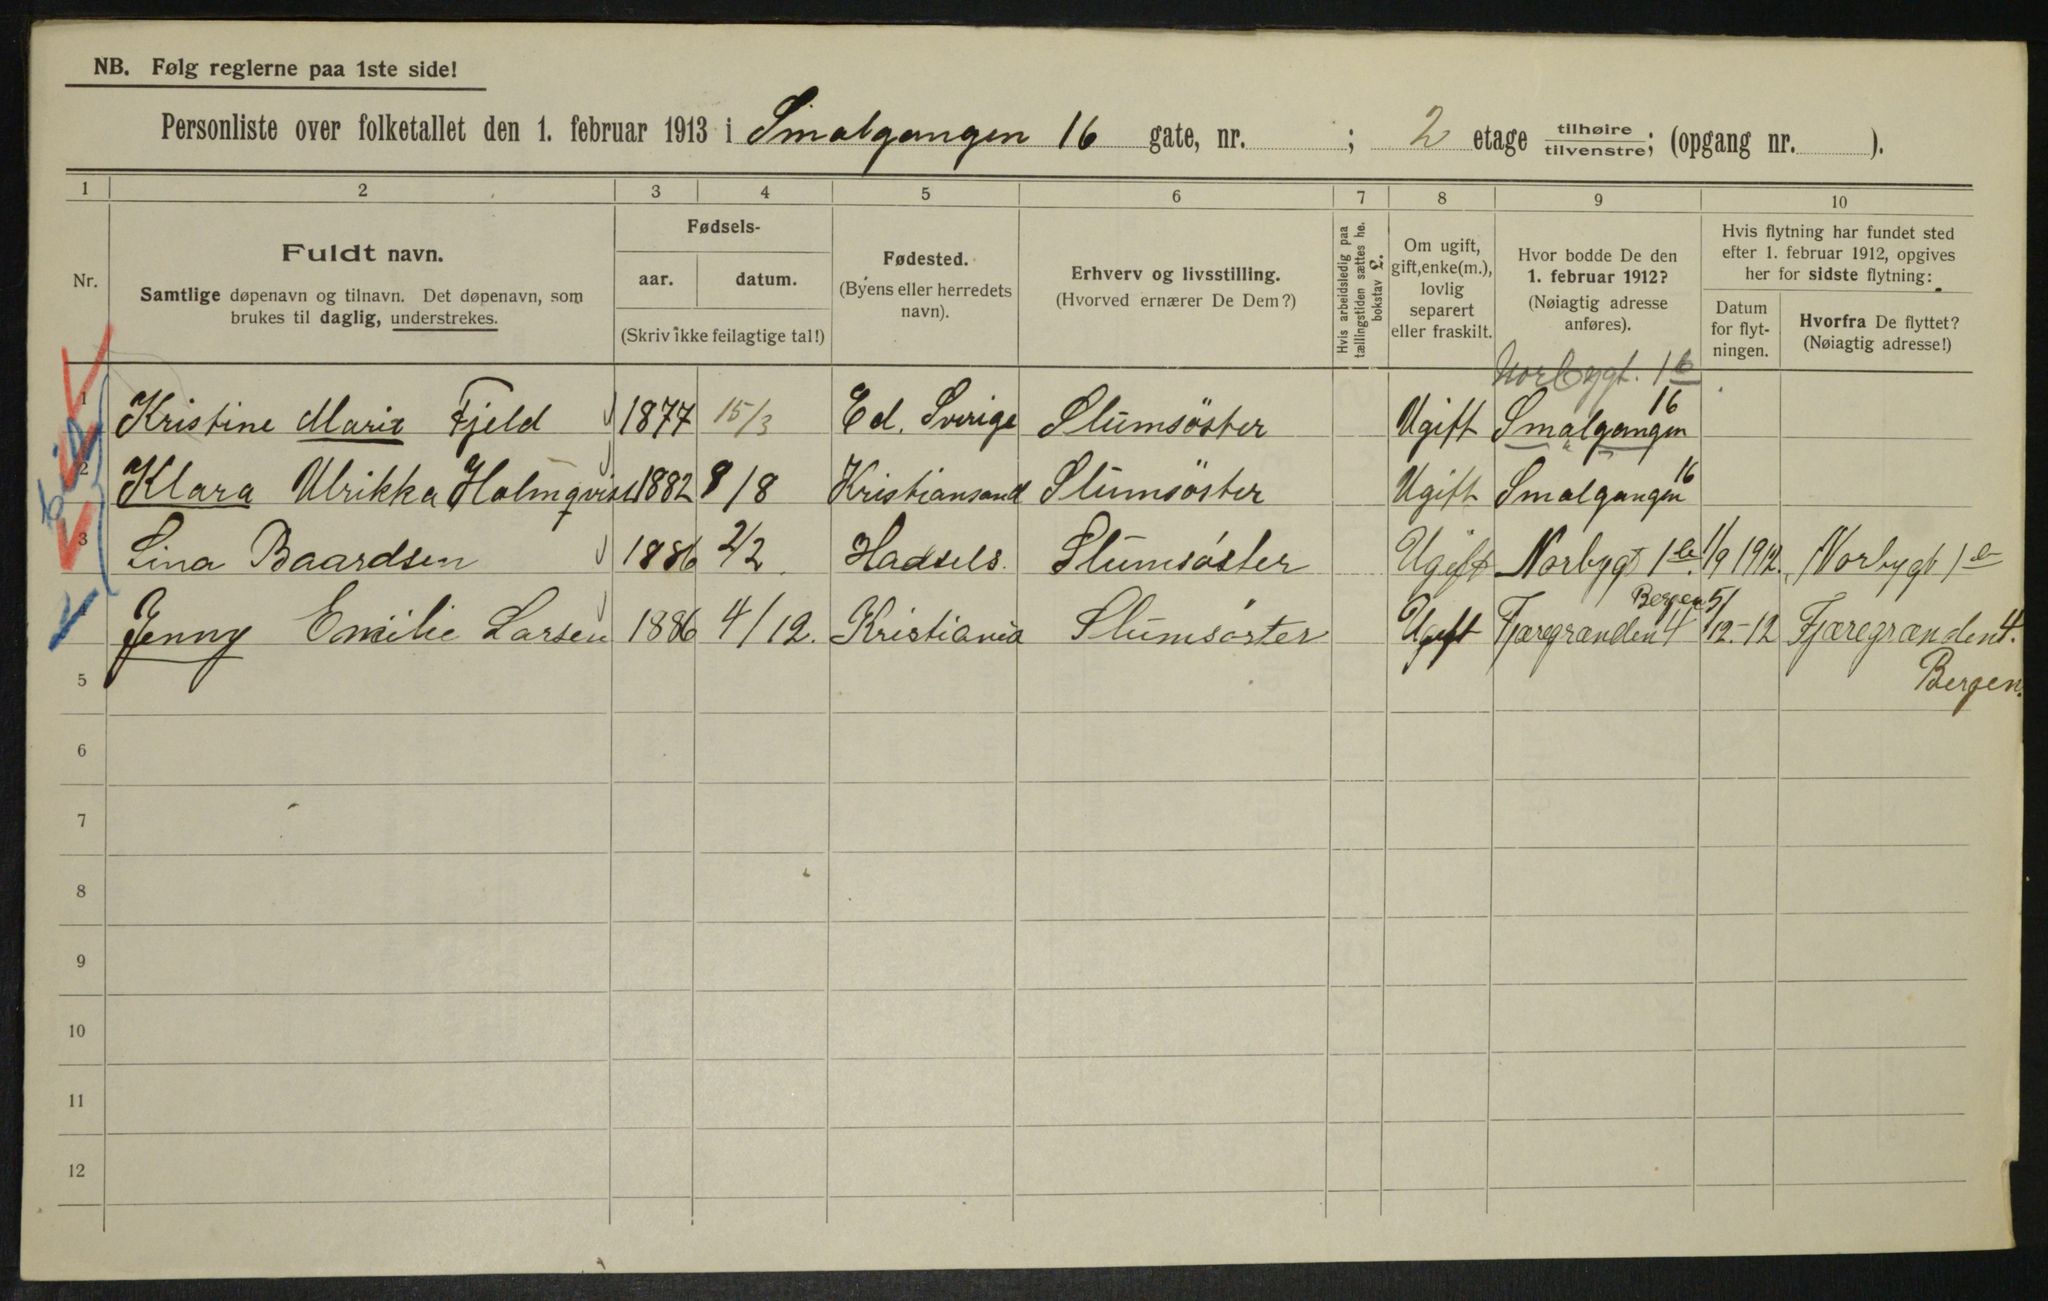 NB. Følg reglerne paa 1ste side!
Personliste over folketallet den 1. februar 1913 i Smalgangen 16 gate, nr. ; 2 etage tilhøire tilvenstre; (opgang nr. ).
1 2 3 4 5 6 7 8 9 10
Nr.
Fuldt navn.
Samtlige døpenavn og tilnavn. Det døpenavn, som
brukes til daglig, understrekes.
Fødsels-
aar. datum.
(Skriv ikke feilagtige tal!)
Fødested.
(Byens eller herredets
navn).
Erhverv og livsstilling.
(Hvorved ernærer De Dem?)
Hvis arbeidsledig paa
tællingstiden sættes he.
bokstav L.
Om ugift,
gift, enke(m.),
lovlig
separert
eller fraskilt.
Hvor bodde De den
1. februar 1912?
(Nøiagtig adresse
anføres).
Hvis flytning har fundet sted
efter 1. februar 1912, opgives
her for sidste flytning:
Datum
for flyt-
ningen.
Hvorfra De flyttet?
(Nøiagtig adresse!)
Norbygt. 1b
1 Kristine Marie Fjeld 1877 15/3 Ed. Sverige Slumsöster Ugift Smalgangen 16
2 Klara Ulrikka Holmqvist 1882 8/8 Kristiansand Slumsöster Ugift Smalgangen 16
3 Lina Baardsen 1886 2/2 Hadsels Slumsöster Ugift Norbygt 1 1/9 1912. Norbygt 1
Jenny Emilie Larsen 1886 4/12. Kristiania Slumsöster Ugift Fjæregranden 4 Bergen 5/12-12 Fjæregranden 4.
Bergen.
5
6
7
8
9
10
11
12